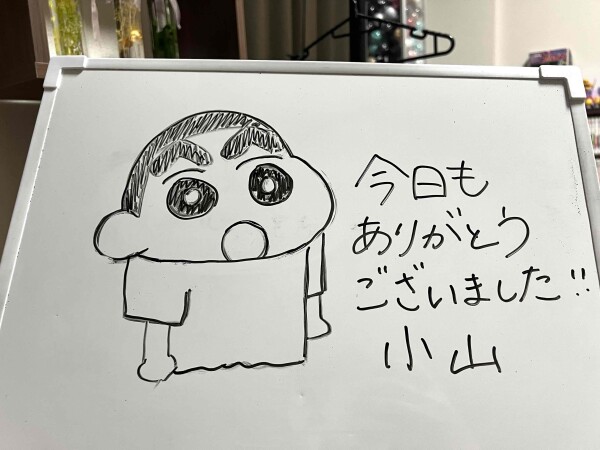 今日も
ありがとう
ございました!!
小山